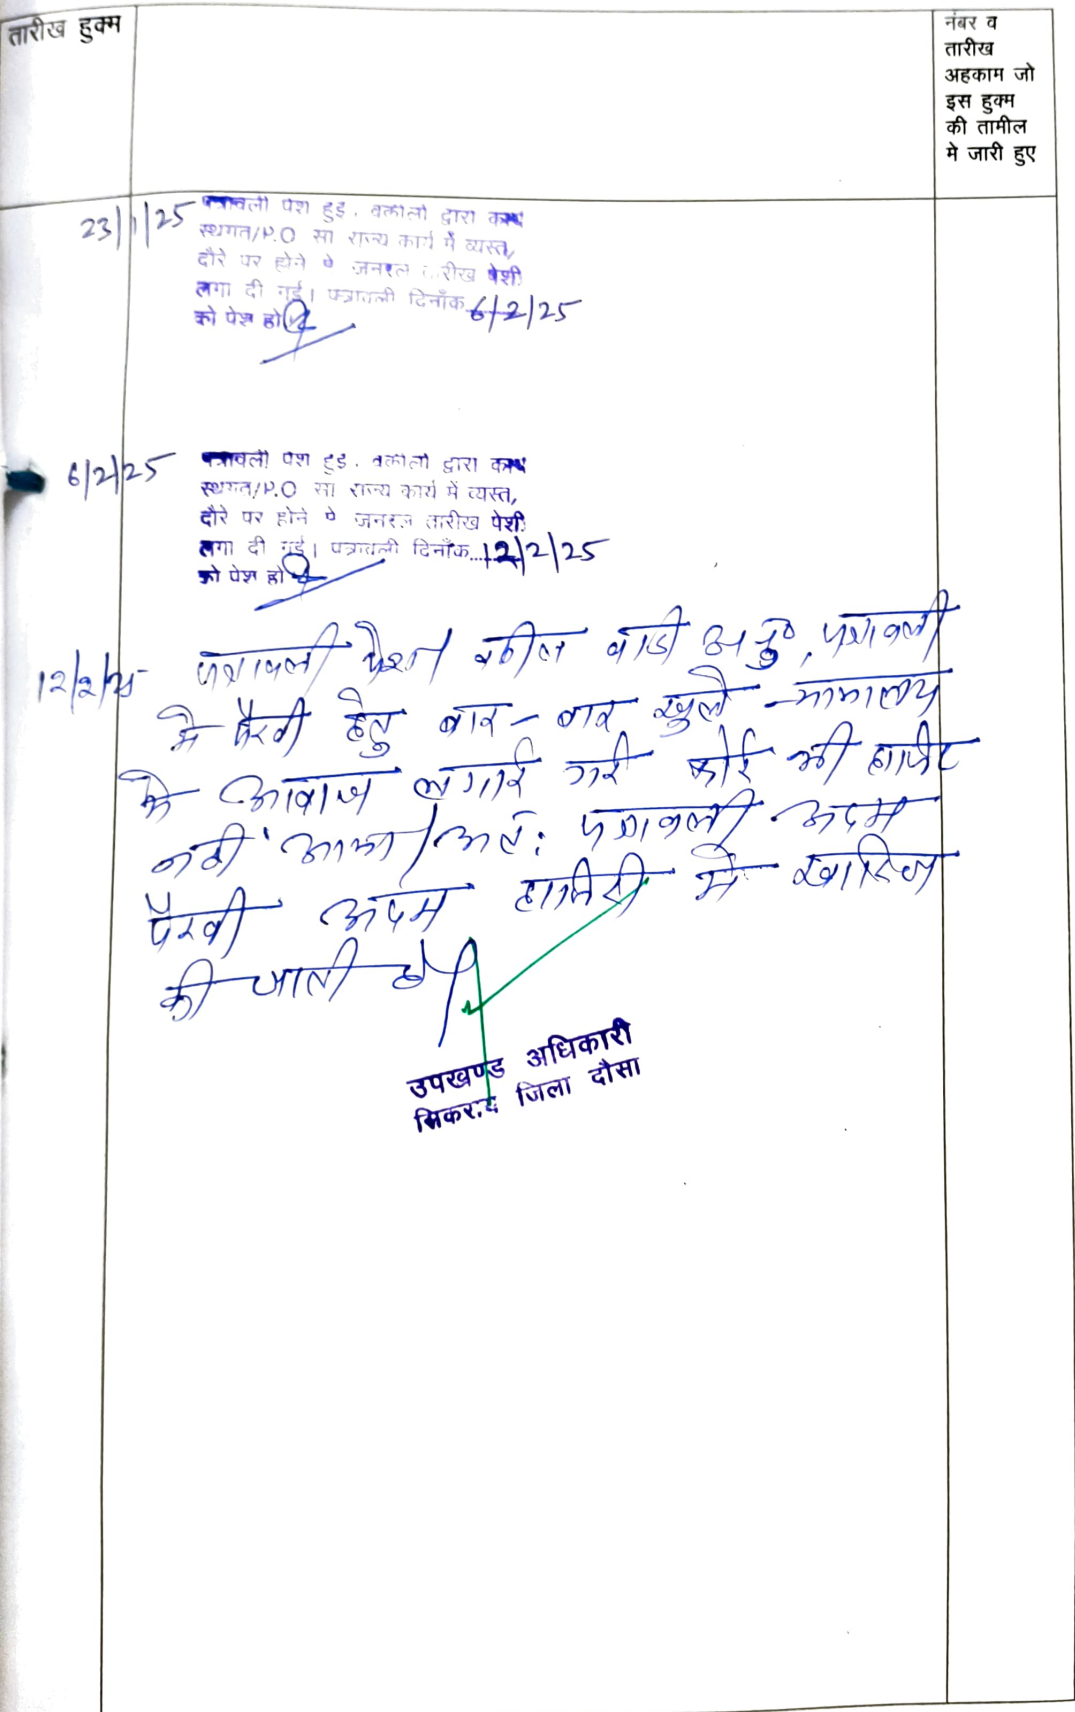 तारीख हुक्म
नंबर व
तारीख
अहकाम जो
इस हुक्म
की तामील
मे जारी हुए
23/1/25
पत्रावली पेश हुई. वकीलो द्वारा कार्य
स्थगत/P.O सा राज्य कार्य में व्यस्त,
दौरे पर होने पे जनरल तारीख पेशी
लगा दी गई। पत्रावली दिनाँक 6/2/25
को पेश हो
6/2/25
पत्रावली पेश हुई. वकीलो द्वारा कार्य
स्थगत/P.O सा राज्य कार्य में व्यस्त,
दौरे पर होने पे जनरल तारीख पेशी
लगा दी गई। पत्रावली दिनाँक...12/2/25
को पेश हो
12/2/25 पत्रावली पेश। वकील वादी अनु०, पत्रावली
मे पैरवी हेतु बार-बार खुले न्यायालय
मे आवाज लगाई गई कोई भी हाजिर
नही आया। अत: पत्रावली अदम
पैरवी अदम हाजिरी मे खारिज
की जाती है।
उपखण्ड अधिकारी
सिकराय जिला दौसा